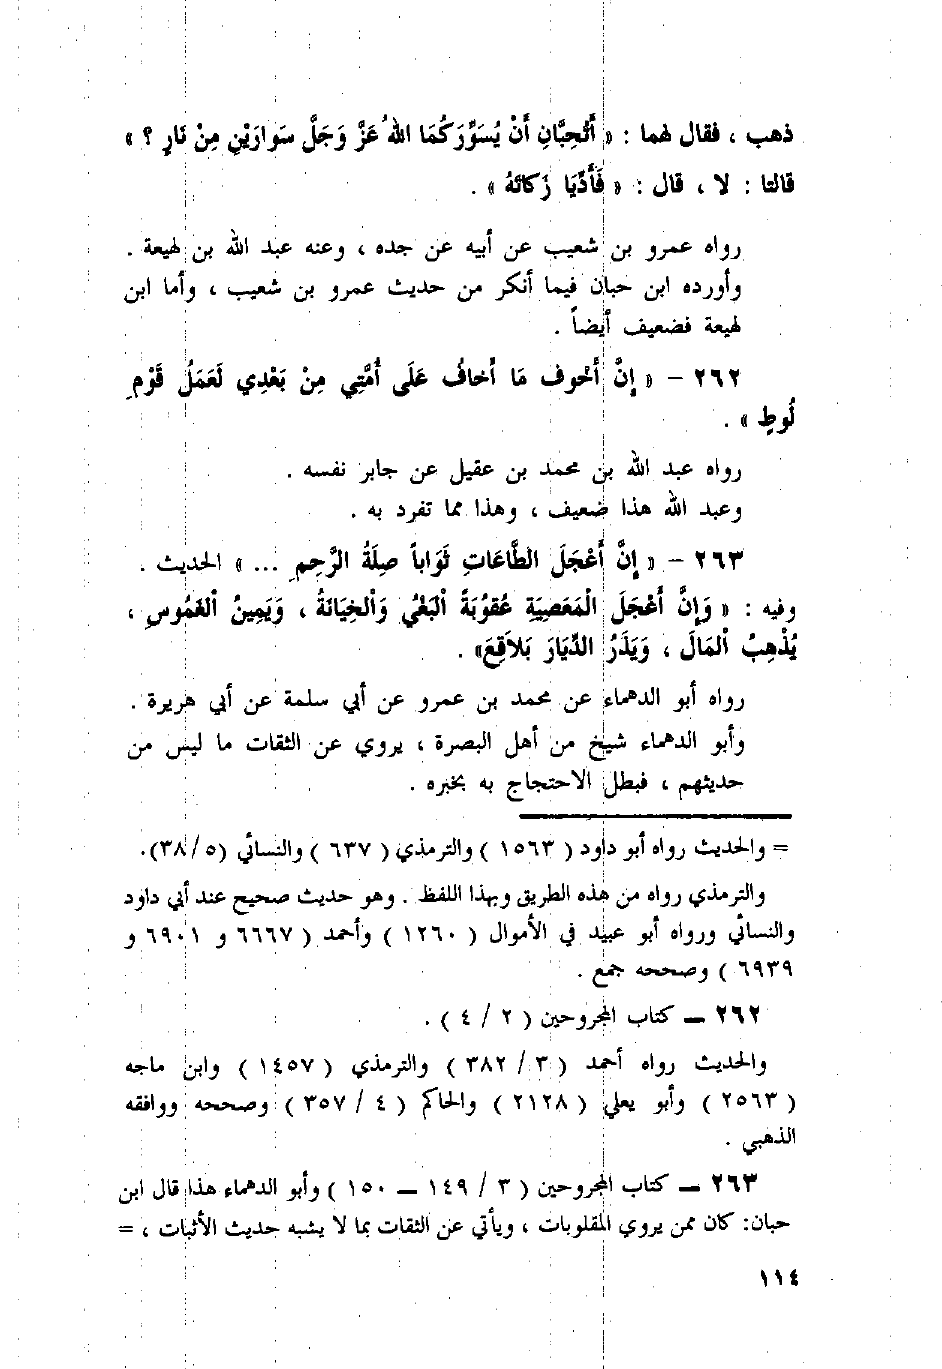 ذهب ، فقال لهما : « أَتُحِبَّانِ أَنْ يُسَوِّرَكُمَا اللهُ عَزَّ وَجَلَّ سَوارَيْنِ مِنْ نَارٍ ؟ »
قالتا : لا ، قال : « فَأَدِّيَا زَكاتَهُ » .
رواه عمرو بن شعيب عن أبيه عن جده ، وعنه عبد الله بن لهيعة .
وأورده ابن حبان فيما أنكر من حديث عمرو بن شعيب ، وأما ابن
لهيعة فضعيف أيضاً .
٢٦٢ – « إِنَّ أَخْوف مَا أَخافُ عَلَى أُمَّتِي مِنْ بَعْدِي لَعَمَلُ قَوْمِ
لُوطٍ » .
رواه عبد الله بن محمد بن عقيل عن جابر نفسه .
وعبد الله هذا ضعيف ، وهذا مما تفرد به .
٢٦٣ – « إِنَّ أَعْجَلَ الطَّاعَاتِ ثَوَاباً صِلَةُ الرَّحِمِ ... » الحديث .
وفيه : « وَإِنَّ أَعْجَلَ الْمَعَصِيَةِ عُقوُبَةً اَلْبَغْيُ وَاَلخِيَانَةُ ، وَيَمِينُ اَلْغَمُوسِ ،
يُذْهِبُ اْلمَالَ ، وَيَذَرُ الدِّيَارَ بَلاَقِعَ» .
رواه أبو الدهماء عن محمد بن عمرو عن أبي سلمة عن أبي هريرة .
وأبو الدهماء شيخ من أهل البصرة ، يروي عن الثقات ما ليس من
حديثهم ، فبطل الاحتجاج به بخبره .
= والحديث رواه أبو داود ( ١٥٦٣ ) والترمذي ( ٦٣٧ ) والنسائي (٥/ ٣٨).
والترمذي رواه من هذه الطريق وبهذا اللفظ . وهو حديث صحيح عند أبي داود
والنسائي ورواه أبو عبيد في الأموال ( ١٢٦٠ ) وأحمد ( ٦٦٦٧ و ٦٩٠١ و
٦٩٣٩ ) وصححه جمع .
٢٦٢ – كتاب المجروحين ( ٢ / ٤ ) .
والحديث رواه أحمد ( ٣ / ٣٨٢ ) والترمذي ( ١٤٥٧ ) وابن ماجه
( ٢٥٦٣ ) وأبو يعلي ( ٢١٢٨ ) والحاكم ( ٤ / ٣٥٧ ) وصححه ووافقه
الذهبي .
٢٦٣ – كتاب المجروحين ( ٣ / ١٤٩ – ١٥٠ ) وأبو الدهماء هذا قال ابن
حبان: كان ممن يروي المقلوبات ، ويأتي عن الثقات بما لا يشبه حديث الأثبات ، =
١١٤